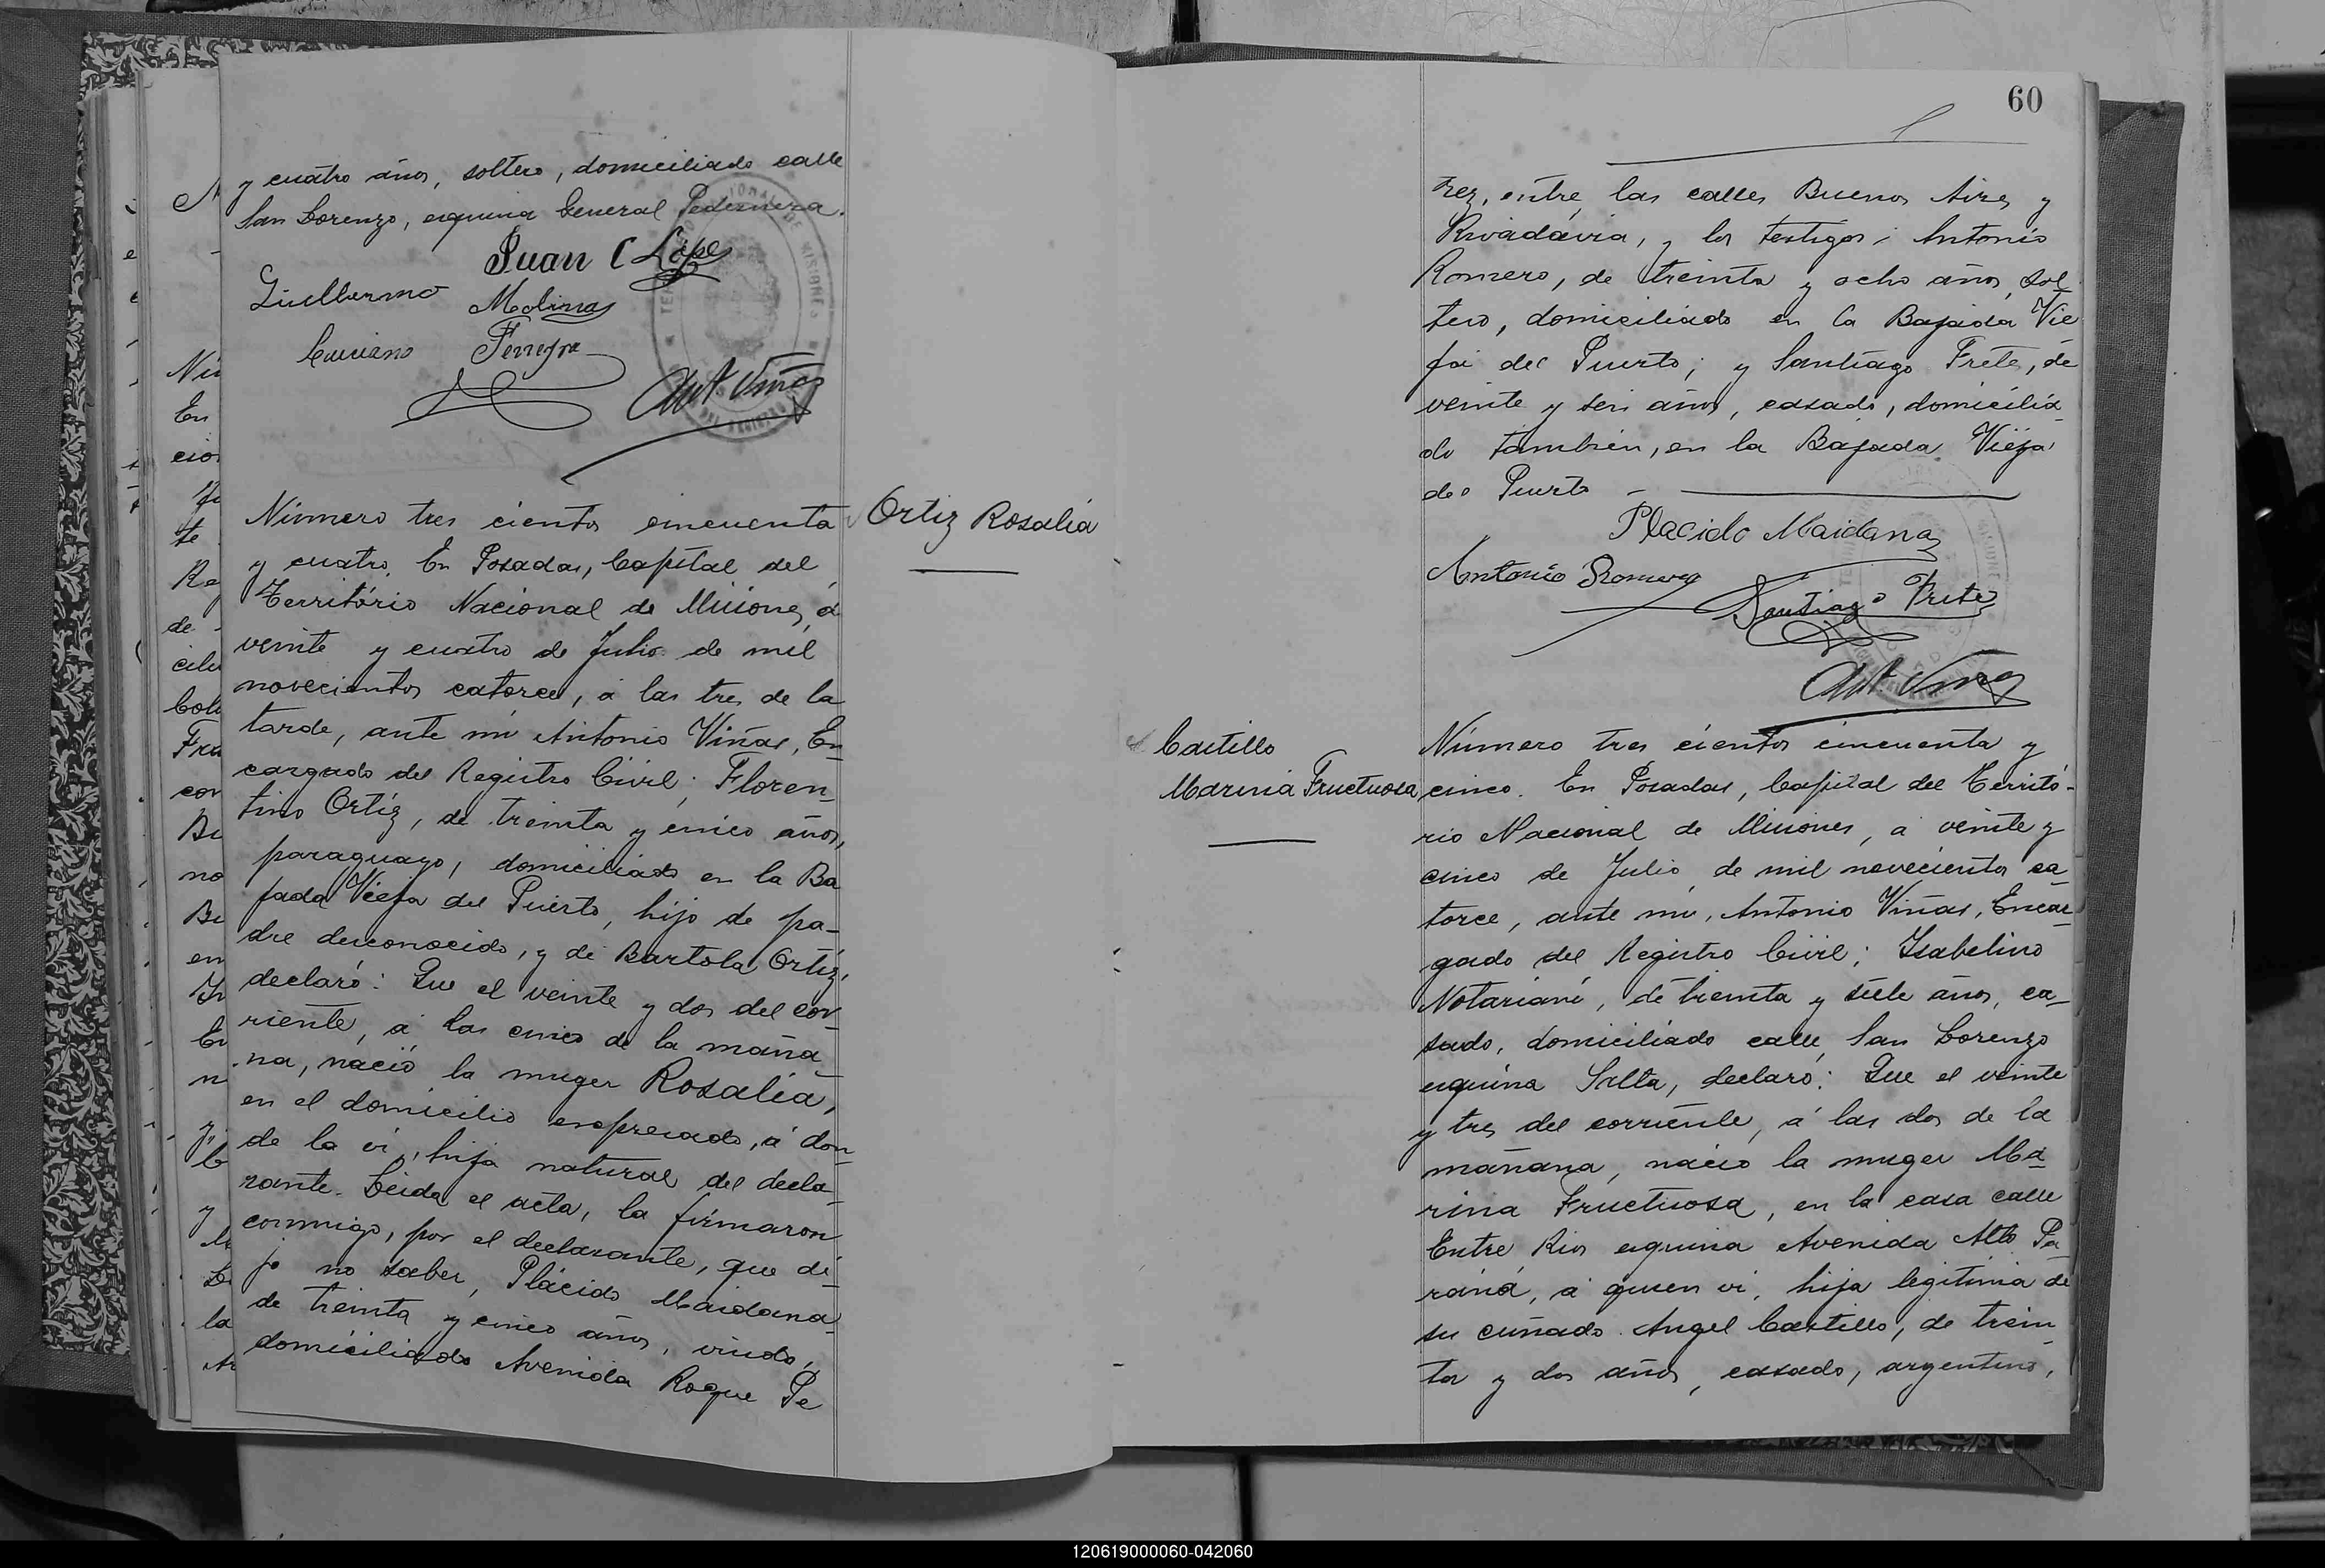 y cuatro años, soltero, domiciliado calle
San Lorenzo, esquina General Pedernera.
Juan C López
Guillermo Molinas
Luciano Ferreyra
Ant. Viñas
Número tres cientos cincuenta
y cuatro. En Posadas, Capital del
Território Nacional de Misiones, á
veinte y cuatro de Julio de mil
novecientos catorce, á las tres de la
tarde, ante mi Antonio Viñas, En
cargado del Registro Civil; Floren-
tino Ortíz, de treinta y cinco años,
paraguayo, domiciliado en la Ba
jada Vieja del Puerto, hijo de pa-
dre desconocido, y de Bartola Ortíz,
declaró: Que el veinte y dos del cor-
riente, á las cinco de la maña
na, nació la muger Rosalía,
en el domicilio expresado, á don-
de la vi, hija natural del decla-
rante. Leida el acta, la firmaron
conmigo, por el declarante, que di-
jo no saber, Plácido Maidana
de treinta y cinco años, viudo,
domiciliado Avenida Roque Pe
Ortiz Rosalía
60
rez, entre las calles Buenos Aires y
Rivadavia, y los testigos: Antonio
Romero, de treinta y ocho años, sol
tero, domiciliado en la Bajada Vie
ja del Puerto; y Santiago Frete, de
veinte y seis años, casado, domicilia-
do tambien, en la Bajada Vieja
del Puerto
Placido Maidana
Antonio Romero
Santiago Frete
Ant. Viñas
Castillo
Marina Fructuosa
Número tres cientos cincuenta y
cinco. En Posadas, Capital del Territó-
rio Nacional de Misiones, á veinte y
cinco de Julio de mil novecientos ca-
torce, ante mi, Antonio Viñas, Encar-
gado del Registro Civil; Isabelino
Notariani, de treinta y siete años, ca-
sado, domiciliado calle San Lorenzo
esquina Salta, declaró: Que el veinte
y tres del corriente, á las dos de la
mañana, nació la muger Ma-
rina Fructuosa, en la casa calle
Entre Rios esquina Avenida Alto Pa
raná, á quien vi, hija legitima de
su cuñado Angel Castillo, de trein-
ta y dos años, casado, argentino,
120619000060-042060